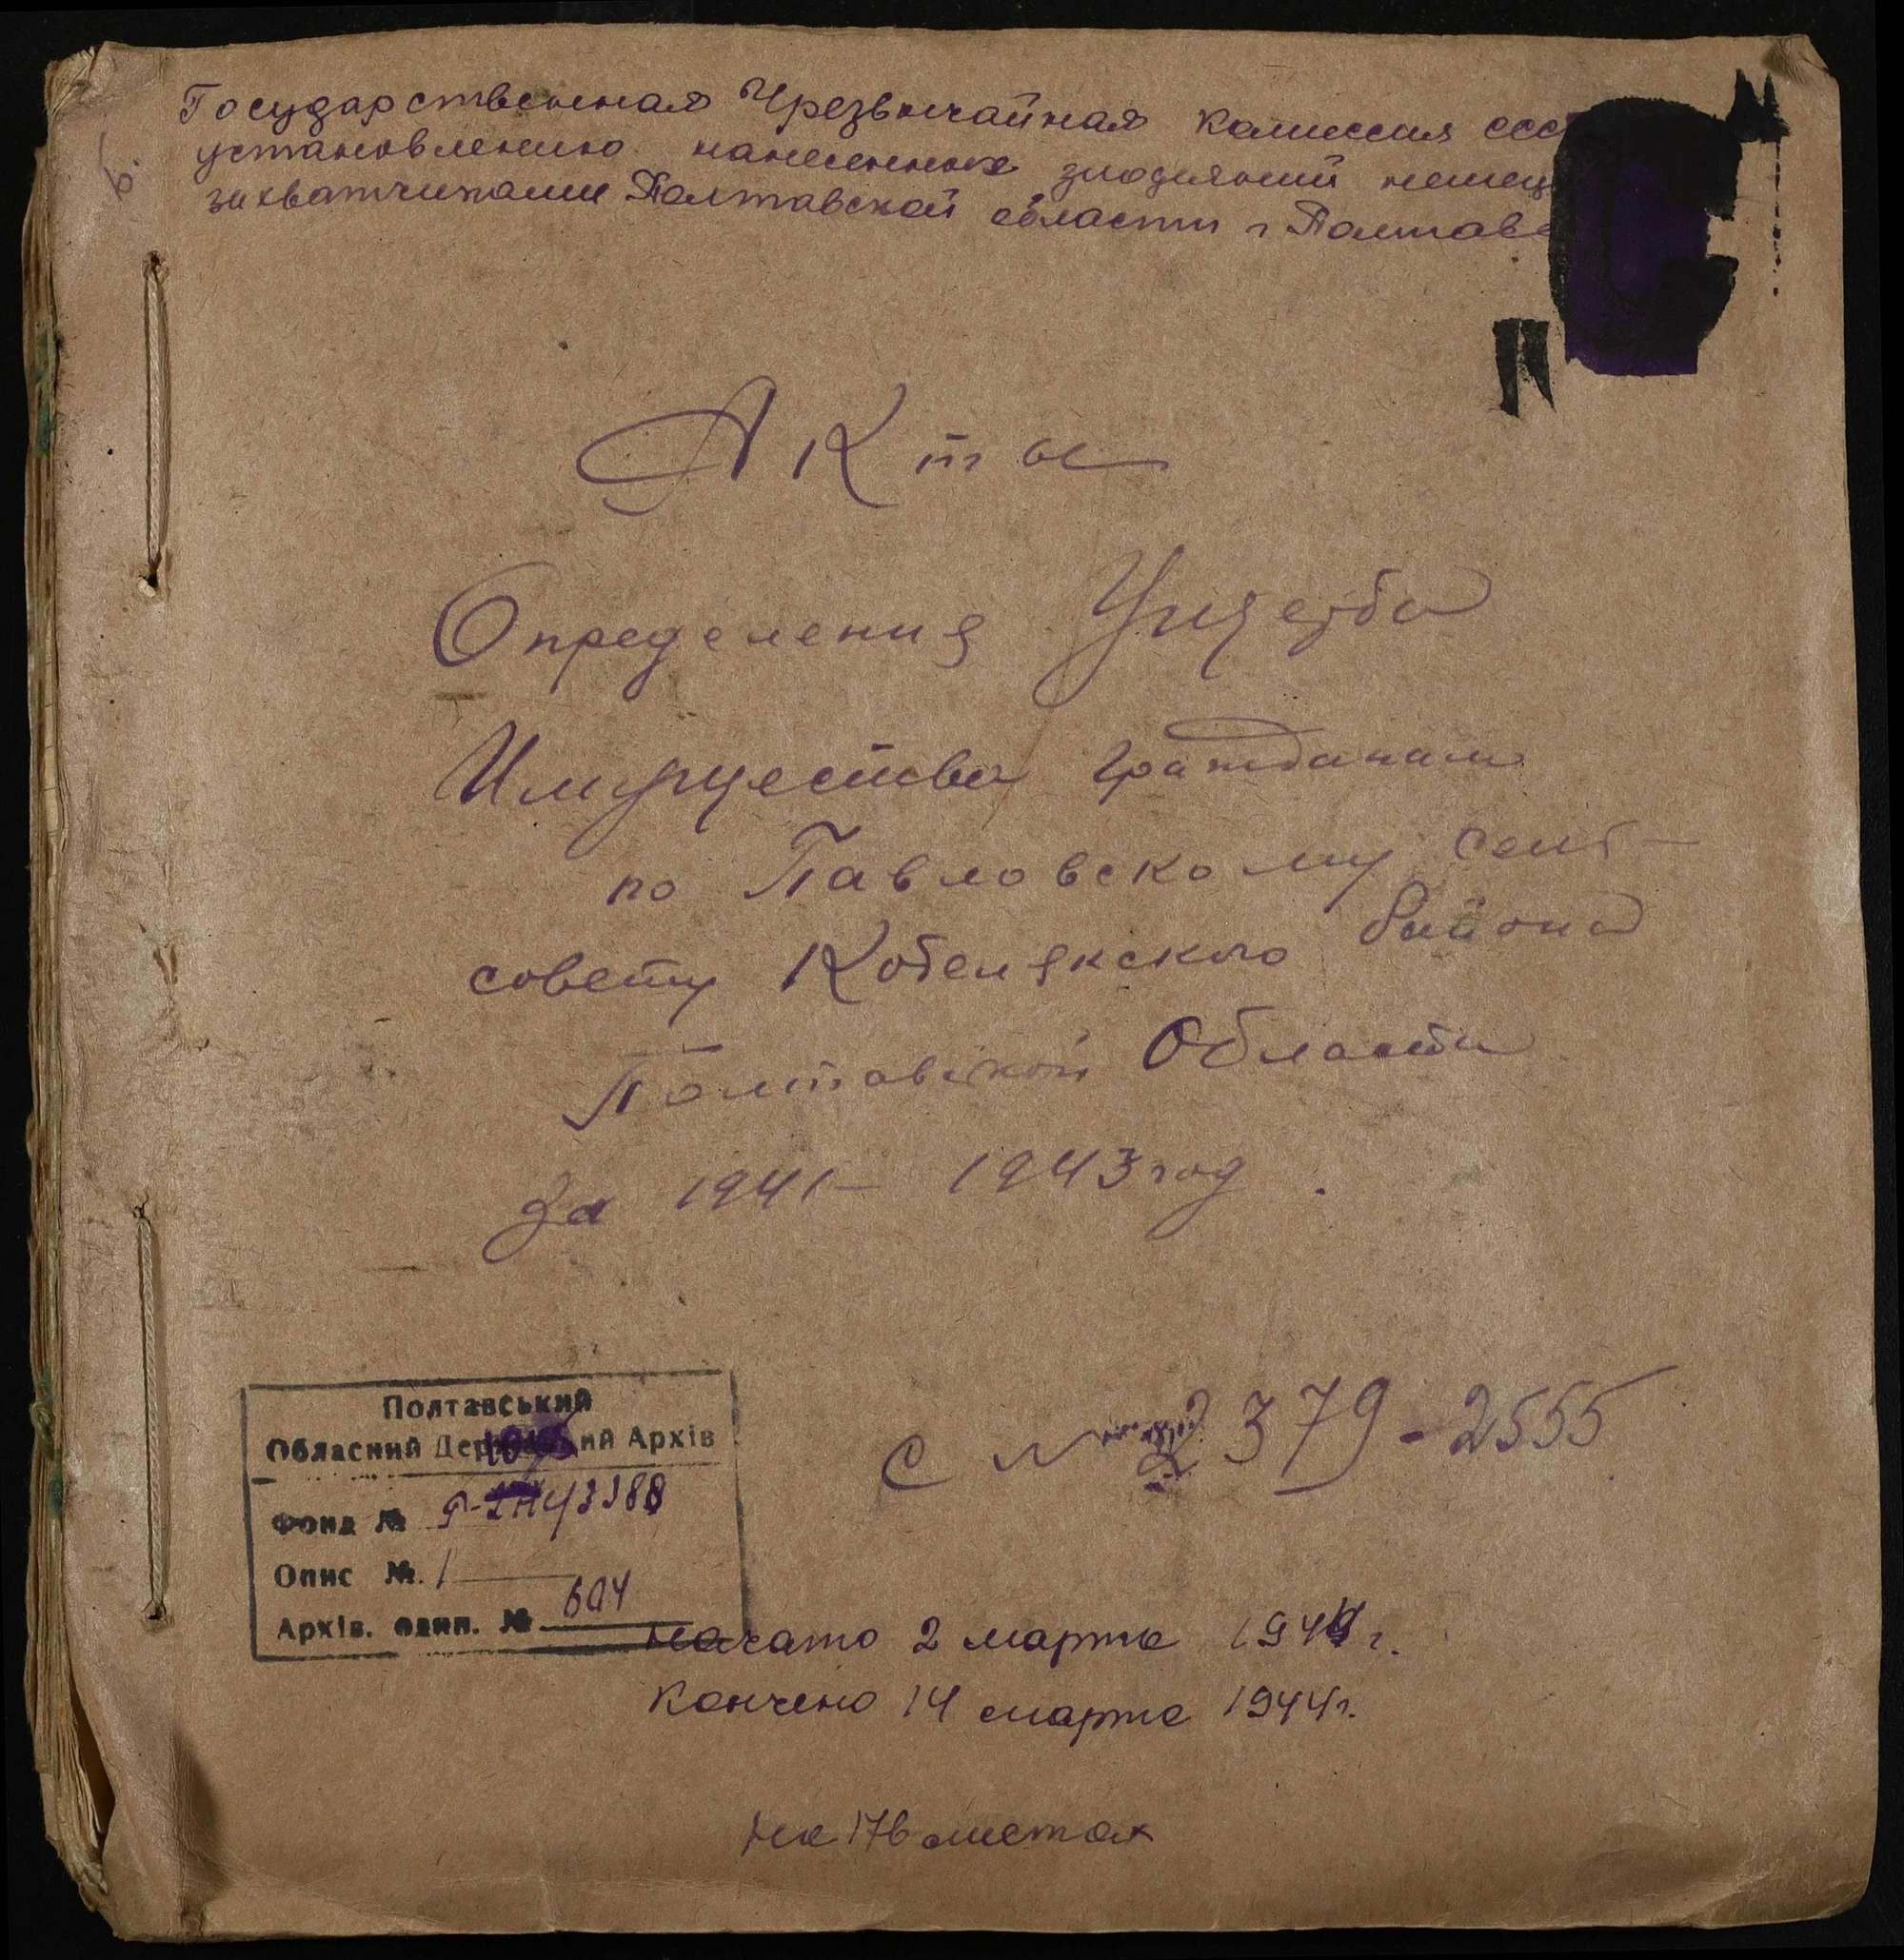 Государственная Чрезвычайная комиссия ссс
установлению нанесенных злодияний немец
захватчиками Полтавской области г Полтава
Акты
Определения Ущерба
Имущества гражданам
по Павловскому сель-
совету Кобелякского района
Полтавской Области
За 1941- 1943 год.
с № 2379-2555
Полтавський
Обласний Державний Архів
Фонд № Р-3388
Опис № 1
Архів. один. № 604
Начато 2 марта 1944 г.
Кончено 14 марта 1944 г.
На 176 листах